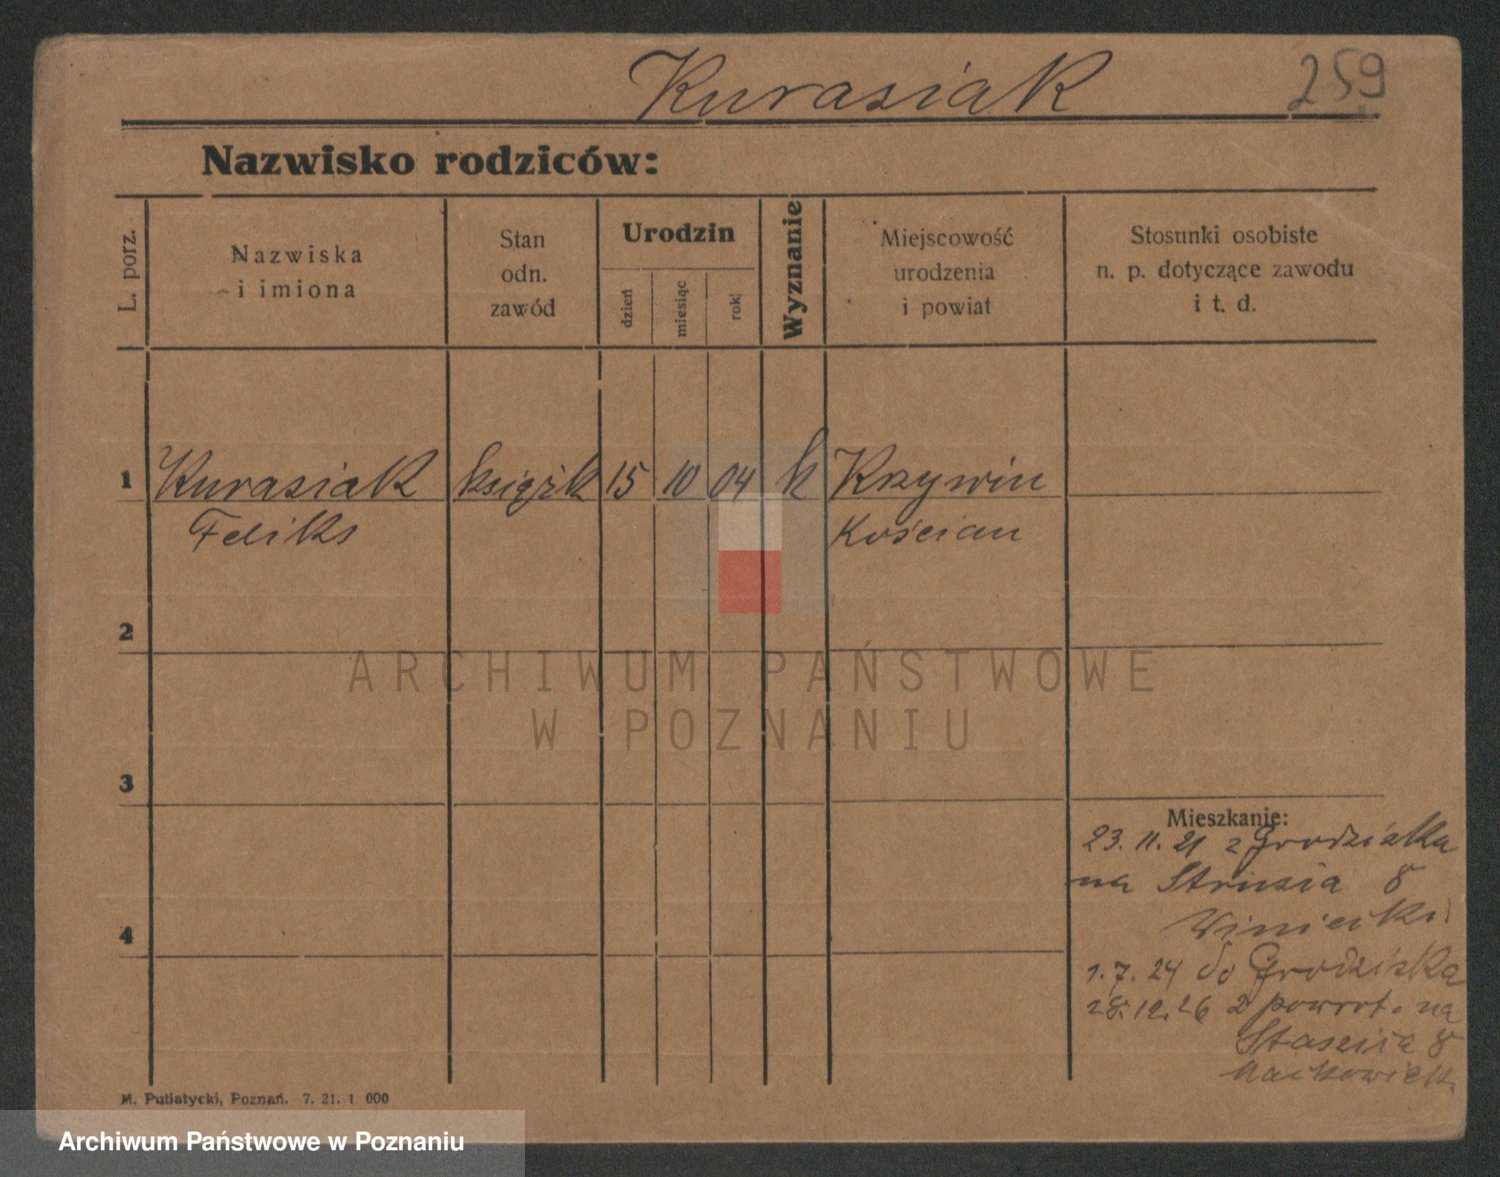 Kurasiak
259
Nazwisko rodziców:
L. porz.
Nazwiska
i imiona
Stan
odn.
zawód
Urodzin
dzień
miesiąc
rok
Wyznanie
Miejscowość
urodzenia
i powiat
Stosunki osobiste
n. p. dotyczące zawodu
i t. d.
1 Kurasiak książk 15 10 04 k Krzywin
Feliks Kościan
2
3
4
Mieszkanie:
23. 11. 21 z Grodziska
na Strusia 8
Winiecki
1. 7. 24 do Grodziska
28. 12. 26 z powrot. na
Staszica 8
M. Putiatycki, Poznań. 7. 21. 1 000
ARCHIWUM PAŃSTWOWE
W POZNANIU
Archiwum Państwowe w Poznaniu